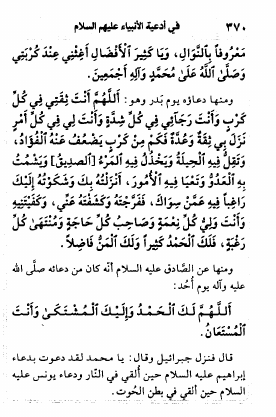 ٣٧٠ في أدعية الأنبياء عليهم السلام
مَعْرُوفاً بِالنَّوَالِ، وَيَا كَثِيرَ الْأَفْضَالِ أَغِثْنِي عِنْدَ كُرْبَتِي
وَصَلَّى اللَّهُ عَلَىٰ مُحَمَّدٍ وَآلِهِ أَجْمَعِينَ.
ومنها دعاؤه يوم بَدر وهو: اللَّهُمَّ أَنْتَ ثِقَتِي فِي كُلِّ
كَرْبٍ وَأَنْتَ رَجَائِي فِي كُلِّ شِدَّةٍ وَأَنْتَ لِي فِي كُلِّ أَمْرٍ
نَزَلَ بِي ثِقَةٌ وَعُدَّةٌ فَكَمْ مِنْ كَرْبٍ يَضْعُفُ عَنْهُ الْفُؤَادُ،
وَتَقِلُّ فِيهِ الْحِيلَةُ وَيَخْذُلُ فِيهِ الْمَرْءُ [الصديق] وَيَشْمُتُ
بِهِ الْعَدُوُّ وَتَعْيَا فِيهِ الْأُمُورُ، أَنْزَلْتُهُ بِكَ وَشَكَوْتُهُ إِلَيْكَ
رَاغِباً فِيهِ عَمَّنْ سِوَاكَ، فَفَرَّجْتَهُ وَكَشَفْتَهُ عَنِّي، وَكَفَيْتَنِيهِ
وَأَنْتَ وَلِيُّ كُلِّ نِعْمَةٍ وَصَاحِبُ كُلِّ حَاجَةٍ وَمُنْتَهَىٰ كُلِّ
رَغْبَةٍ، فَلَكَ الْحَمْدُ كَثِيراً وَلَكَ الْمَنُّ فَاضِلاً.
ومنها عن الصَّادق عليه السلام أنّه كان من دعائه صلَّى الله
عليه وآله يوم أُحُد:
اَللَّهُمَّ لَكَ الْحَمْدُ وَإِلَيْكَ الْمُشْتَكَىٰ وَأَنْتَ
الْمُسْتَعَانُ.
قال فنزل جبرائيل وقال: يا محمد لقد دعوت بدعاء
إبراهيم عليه السلام حين أُلقي في النَّار ودعاء يونس عليه
السلام حين أُلقي في بطن الحُوت.